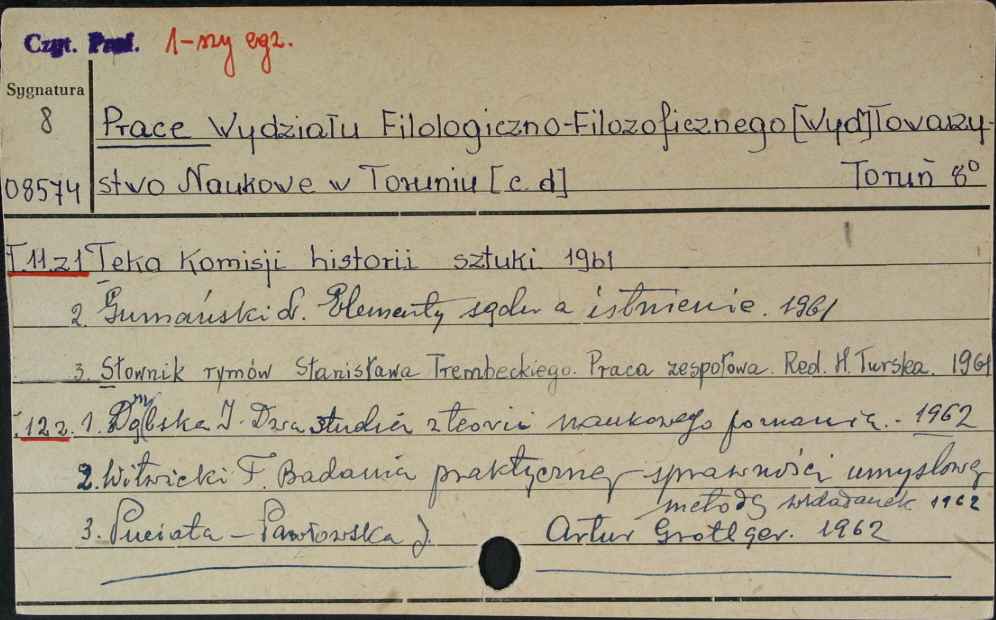 Czyt. Prof. 1-szy egz.
Sygnatura
8
Prace Wydziału Filologiczno-Filozoficznego [Wyd] Towarzy-
08574 stwo Naukowe w Toruniu [c. d] Toruń 8°
T.11.z1 Teka Komisji historii sztuki 1961
2. Gumański L. Elementy sądu a istnienie. 1961
3. Słownik rymów Stanisława Trembeckiego. Praca zespołowa. Red. H. Turska. 1961
T.12 z. 1. Dąmbska I. Dwa studia z teorii naukowego poznania. - 1962
2. Witwicki T. Badania praktycznej sprawności umysłowej
metodą wkładanek 1962
3. Puciata-Pawłowska J. Artur Grottger. 1962